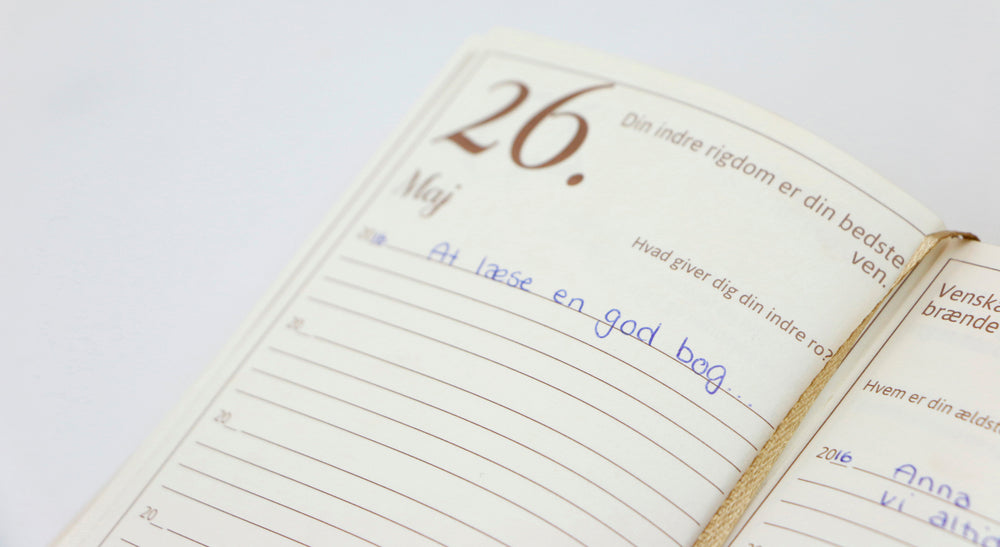 26.
Maj
Din indre rigdom er din bedste
ven.
Hvad giver dig din indre ro?
2016 At læse en god bog...
20__
20__
20__
brænde
Hvem er din
2016 Anna
vi